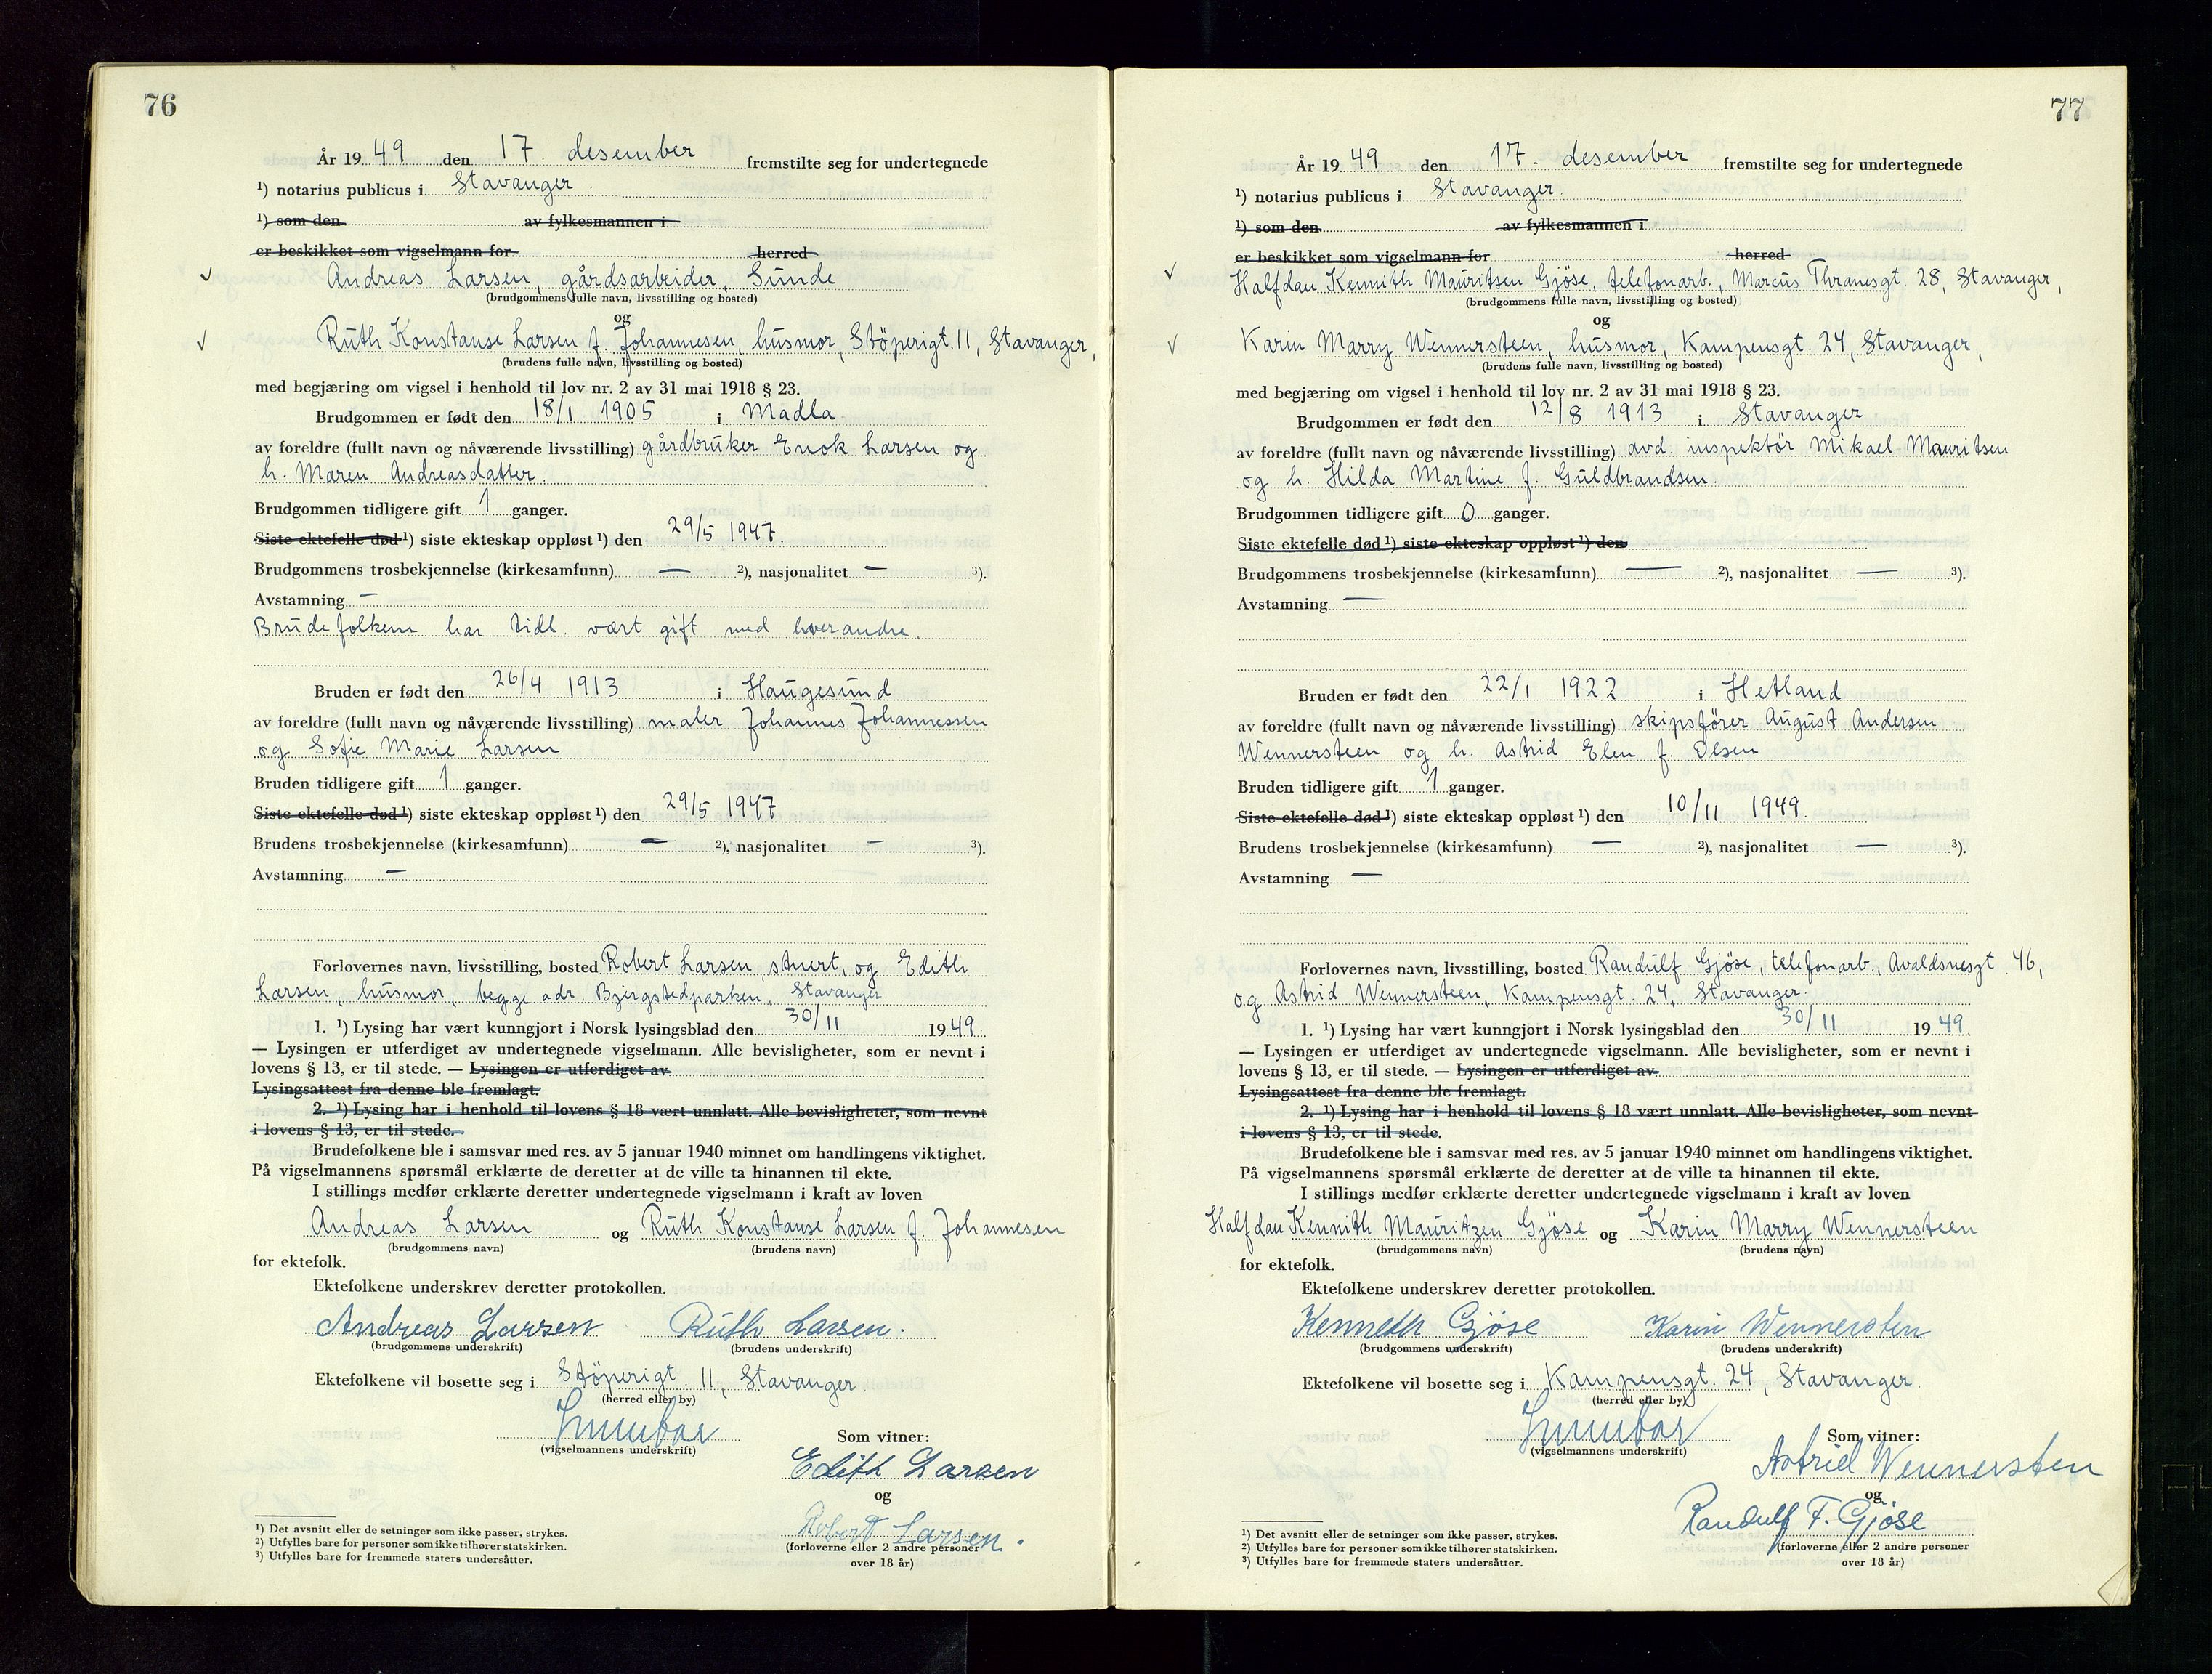 76
År 19 49 den 17. desember fremstilte seg for undertegnede
¹) notarius publicus i Stavanger.
¹) som den av fylkesmannen i
er beskikket som vigselmann for herred
√ Andreas Larsen, gårdsarbeider, Sunde
(brudgommens fulle navn, livsstilling og bosted)
og
√ Ruth Konstanse Larsen f. Johannesen, husmor, Stöperigt. 11, Stavanger,
(brudens fulle navn, livsstilling og bosted)
med begjæring om vigsel i henhold til lov nr. 2 av 31 mai 1918 § 23.
Brudgommen er født den 18/1 1905 i Madla
av foreldre (fullt navn og nåværende livsstilling) gårdbruker Enok Larsen og
h. Maren Andreasdatter.
Brudgommen tidligere gift 1 ganger.
Siste ektefelle død ¹) siste ekteskap oppløst ¹) den 29/5 1947.
Brudgommens trosbekjennelse (kirkesamfunn) — ²), nasjonalitet — ³).
Avstamning —
Brudefolkene har tidl. vært gift med hverandre.
Bruden er født den 26/4 1913 i Haugesund
av foreldre (fullt navn og nåværende livsstilling) maler Johannes Johannessen
og Sofie Marie Larsen
Bruden tidligere gift 1 ganger.
Siste ektefelle død ¹) siste ekteskap oppløst ¹) den 29/5 1947
Brudens trosbekjennelse (kirkesamfunn) — ²), nasjonalitet — ³).
Avstamning —
Forlovernes navn, livsstilling, bosted Robert Larsen, stuert, og Edith
Larsen, husmor, begge adr. Bjergstedparken, Stavanger.
1. ¹) Lysing har vært kunngjort i Norsk lysingsblad den 30/11 19 49.
— Lysingen er utferdiget av undertegnede vigselmann. Alle bevisligheter, som er nevnt i
lovens § 13, er til stede. — Lysingen er utferdiget av
Lysingsattest fra denne ble fremlagt.
2. ¹) Lysing har i henhold til lovens § 18 vært unnlatt. Alle bevisligheter, som nevnt
i lovens § 13, er til stede.
Brudefolkene ble i samsvar med res. av 5 januar 1940 minnet om handlingens viktighet.
På vigselmannens spørsmål erklærte de deretter at de ville ta hinannen til ekte.
I stillings medfør erklærte deretter undertegnede vigselmann i kraft av loven
Andreas Larsen og Ruth Konstanse Larsen f. Johannesen
(brudgommens navn) (brudens navn)
for ektefolk.
Ektefolkene underskrev deretter protokollen.
Andreas Larsen Ruth Larsen.
(brudgommens underskrift) (brudens underskrift)
Ektefolkene vil bosette seg i Stöperigt. 11, Stavanger.
(herred eller by)
(vigselmannens underskrift)
Som vitner:
Edith Larsen
og
Robert Larsen.
(forloverne eller 2 andre personer
over 18 år)
¹) Det avsnitt eller de setninger som ikke passer, strykes.
²) Utfylles bare for personer som ikke tilhører statskirken.
³) Utfylles bare for fremmede staters undersåtter.
77
År 19 49 den 17. desember fremstilte seg for undertegnede
¹) notarius publicus i Stavanger.
¹) som den av fylkesmannen i
er beskikket som vigselmann for herred
√ Halfdan Kennith Mauritsen Gjöse, telefonarb., Marcus Thranesgt. 28, Stavanger,
(brudgommens fulle navn, livsstilling og bosted)
og
√ Karin Marry Wennersteen, husmor, Kampensgt. 24, Stavanger,
(brudens fulle navn, livsstilling og bosted)
med begjæring om vigsel i henhold til lov nr. 2 av 31 mai 1918 § 23.
Brudgommen er født den 12/8 1913 i Stavanger
av foreldre (fullt navn og nåværende livsstilling) avd. inspektör Mikael Mauritsen
og h. Hilda Martine f. Guldbrandsen.
Brudgommen tidligere gift 0 ganger.
Siste ektefelle død ¹) siste ekteskap oppløst ¹) den
Brudgommens trosbekjennelse (kirkesamfunn) — ²), nasjonalitet — ³).
Avstamning —
Bruden er født den 22/1 1922 i Hetland
av foreldre (fullt navn og nåværende livsstilling) skipsförer August Andersen
Wennersteen og h. Astrid Elen f. Olsen
Bruden tidligere gift 1 ganger.
Siste ektefelle død ¹) siste ekteskap oppløst ¹) den 10/11 1949.
Brudens trosbekjennelse (kirkesamfunn) — ²), nasjonalitet — ³).
Avstamning —
Forlovernes navn, livsstilling, bosted Randulf Gjöse, telefonarb., Avaldsnesgt. 46,
og Astrid Wennersteen, Kampensgt. 24, Stavanger.
1. ¹) Lysing har vært kunngjort i Norsk lysingsblad den 30/11 19 49
— Lysingen er utferdiget av undertegnede vigselmann. Alle bevisligheter, som er nevnt i
lovens § 13, er til stede. — Lysingen er utferdiget av
Lysingsattest fra denne ble fremlagt.
2. ¹) Lysing har i henhold til lovens § 18 vært unnlatt. Alle bevisligheter, som nevnt
i lovens § 13, er til stede.
Brudefolkene ble i samsvar med res. av 5 januar 1940 minnet om handlingens viktighet.
På vigselmannens spørsmål erklærte de deretter at de ville ta hinannen til ekte.
I stillings medfør erklærte deretter undertegnede vigselmann i kraft av loven
Halfdan Kennith Mauritzen Gjöse og Karin Marry Wennersteen
(brudgommens navn) (brudens navn)
for ektefolk.
Ektefolkene underskrev deretter protokollen.
Kenneth Gjöse Karin Wennersten
(brudgommens underskrift) (brudens underskrift)
Ektefolkene vil bosette seg i Kampensgt. 24, Stavanger.
(herred eller by)
(vigselmannens underskrift)
Som vitner:
Astrid Wennersten
og
Randulf F. Gjöse
(forloverne eller 2 andre personer
over 18 år)
¹) Det avsnitt eller de setninger som ikke passer, strykes.
²) Utfylles bare for personer som ikke tilhører statskirken.
³) Utfylles bare for fremmede staters undersåtter.